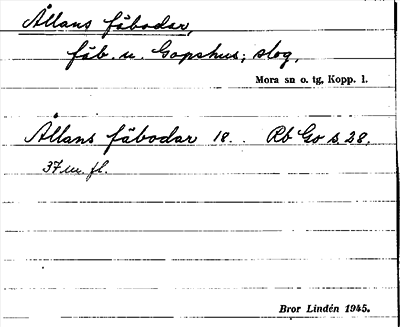 Ållans fäbodar,
fäb. u. Gopshus; skog,
Mora sn o. tg, Kopp. l.
Ållans fäbodar 18.. Rb Go s. 28,
37 m. fl.
Bror Lindén 1945.